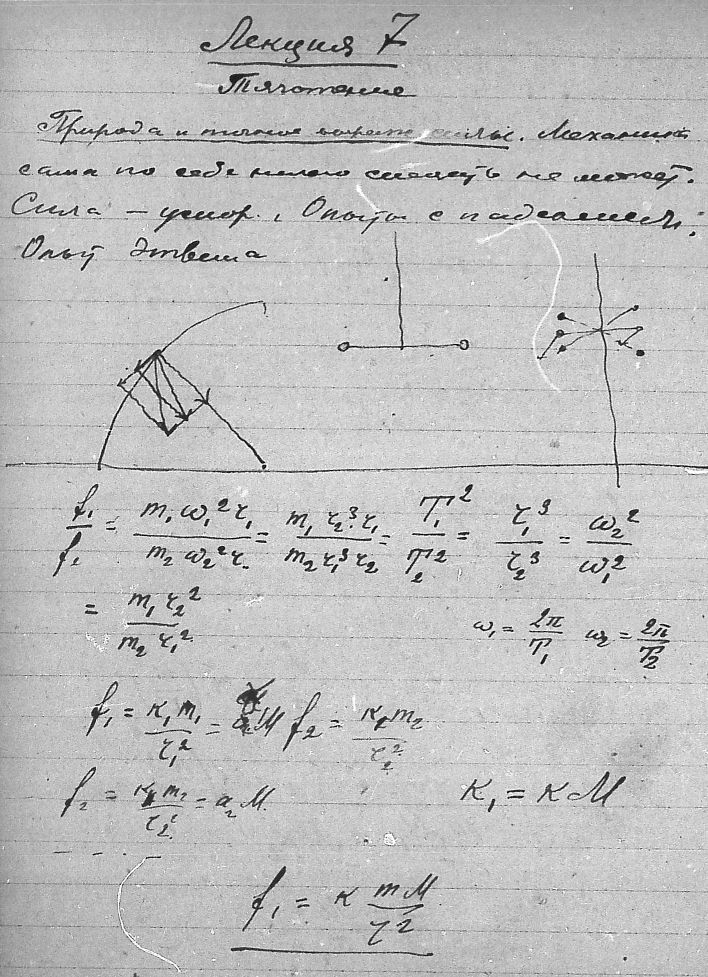 Лекция 7
Тяготение
Природа и точное выраж. силы. Механика
сама по себе ничего сделать не может.
Сила — ускор., Опыты с падением.
Опыт Этвеша
f₁/f₂ = m₁ω₁²r₁/m₂ω₂²r. = m₁r₂³r₁/m₂r₁³r₂ = T₁²/T₂² = r₁³/r₂³ = ω₂²/ω₁²
= m₁r₂²/m₂r₁² ω₁ = 2π/T₁ ω₂ = 2π/T₂
f₁ = K₁m₁/r₁² = a₁M f₂ = K₂m₂/r₂²
f₂ = m₂/r₂² = a₂M. K₁ = KM
f₁ = K mM/r²